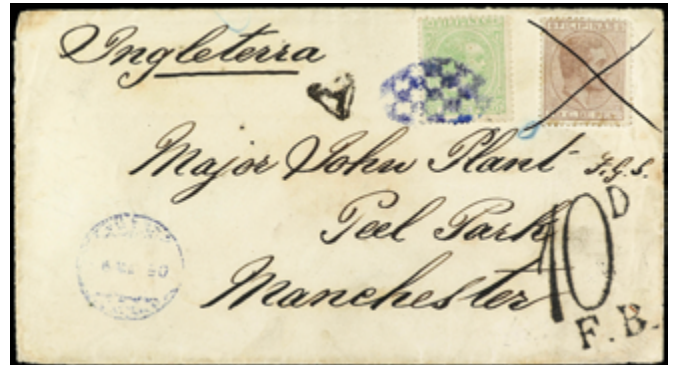 Ingleterra
FILIPINAS
A.
Major John Plant F.G.S.
Peel Park
Manchester
10 D
F. B.
90